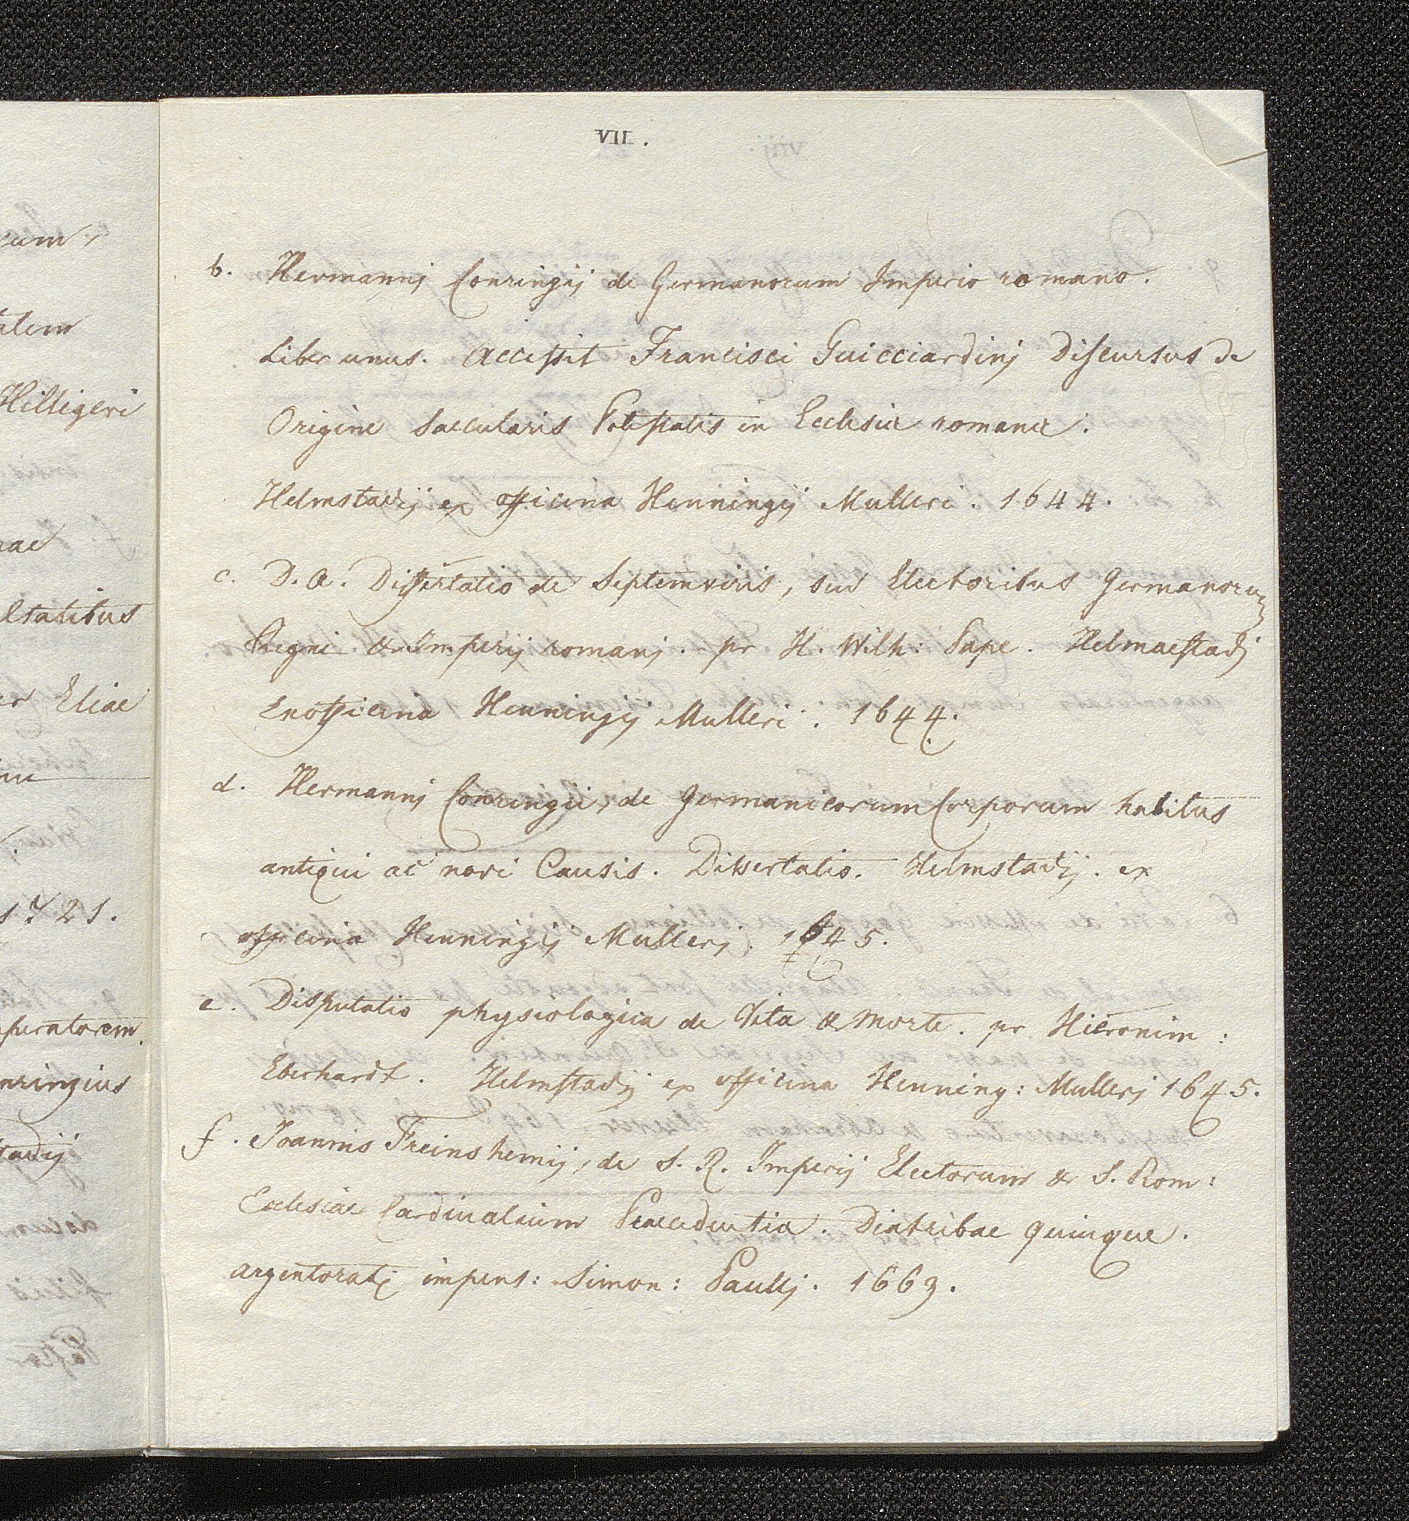 VII.
b. Hermannj Conringij de Germanorum Imperio romano.
Liber unus. Accessit Francisci Guicciardinj Discursus de
Origine Saecularis Potestatis in Ecclesia romana.
Helmstadij ex officina Henningij Mulleri. 1644.
c. D. A. Dissertatio de Septemviris, seu Electoribus Germanorum
Regni & Imperij romanj. pr H. Wilh: Pape. Helmaestadj
Exofficina Henningij Mulleri. 1644.
d. Hermannj Conringii, de Germanicorum Corporum habitus
antiqui ac novi Causis. Dissertatio. Helmstadij. ex
officina Henningij Mullerj. 1645.
e. Disputatio physiologica de Vita & Morte. pr Hieronim:
Eberhardt. Helmstadij ex officina Henning: Mullerj 1645.
f. Joannis Freinshemij, de S. R. Imperij Electorum & S. Rom:
Ecclesiae Cardinalium Praecedentia. Diatribae quinque.
Argentoratj impens: Simon: Paullj. 1663.
cum,
Hilligeri
ltatibus
er Eliae
1721.
peratorem.
nringius
tadij